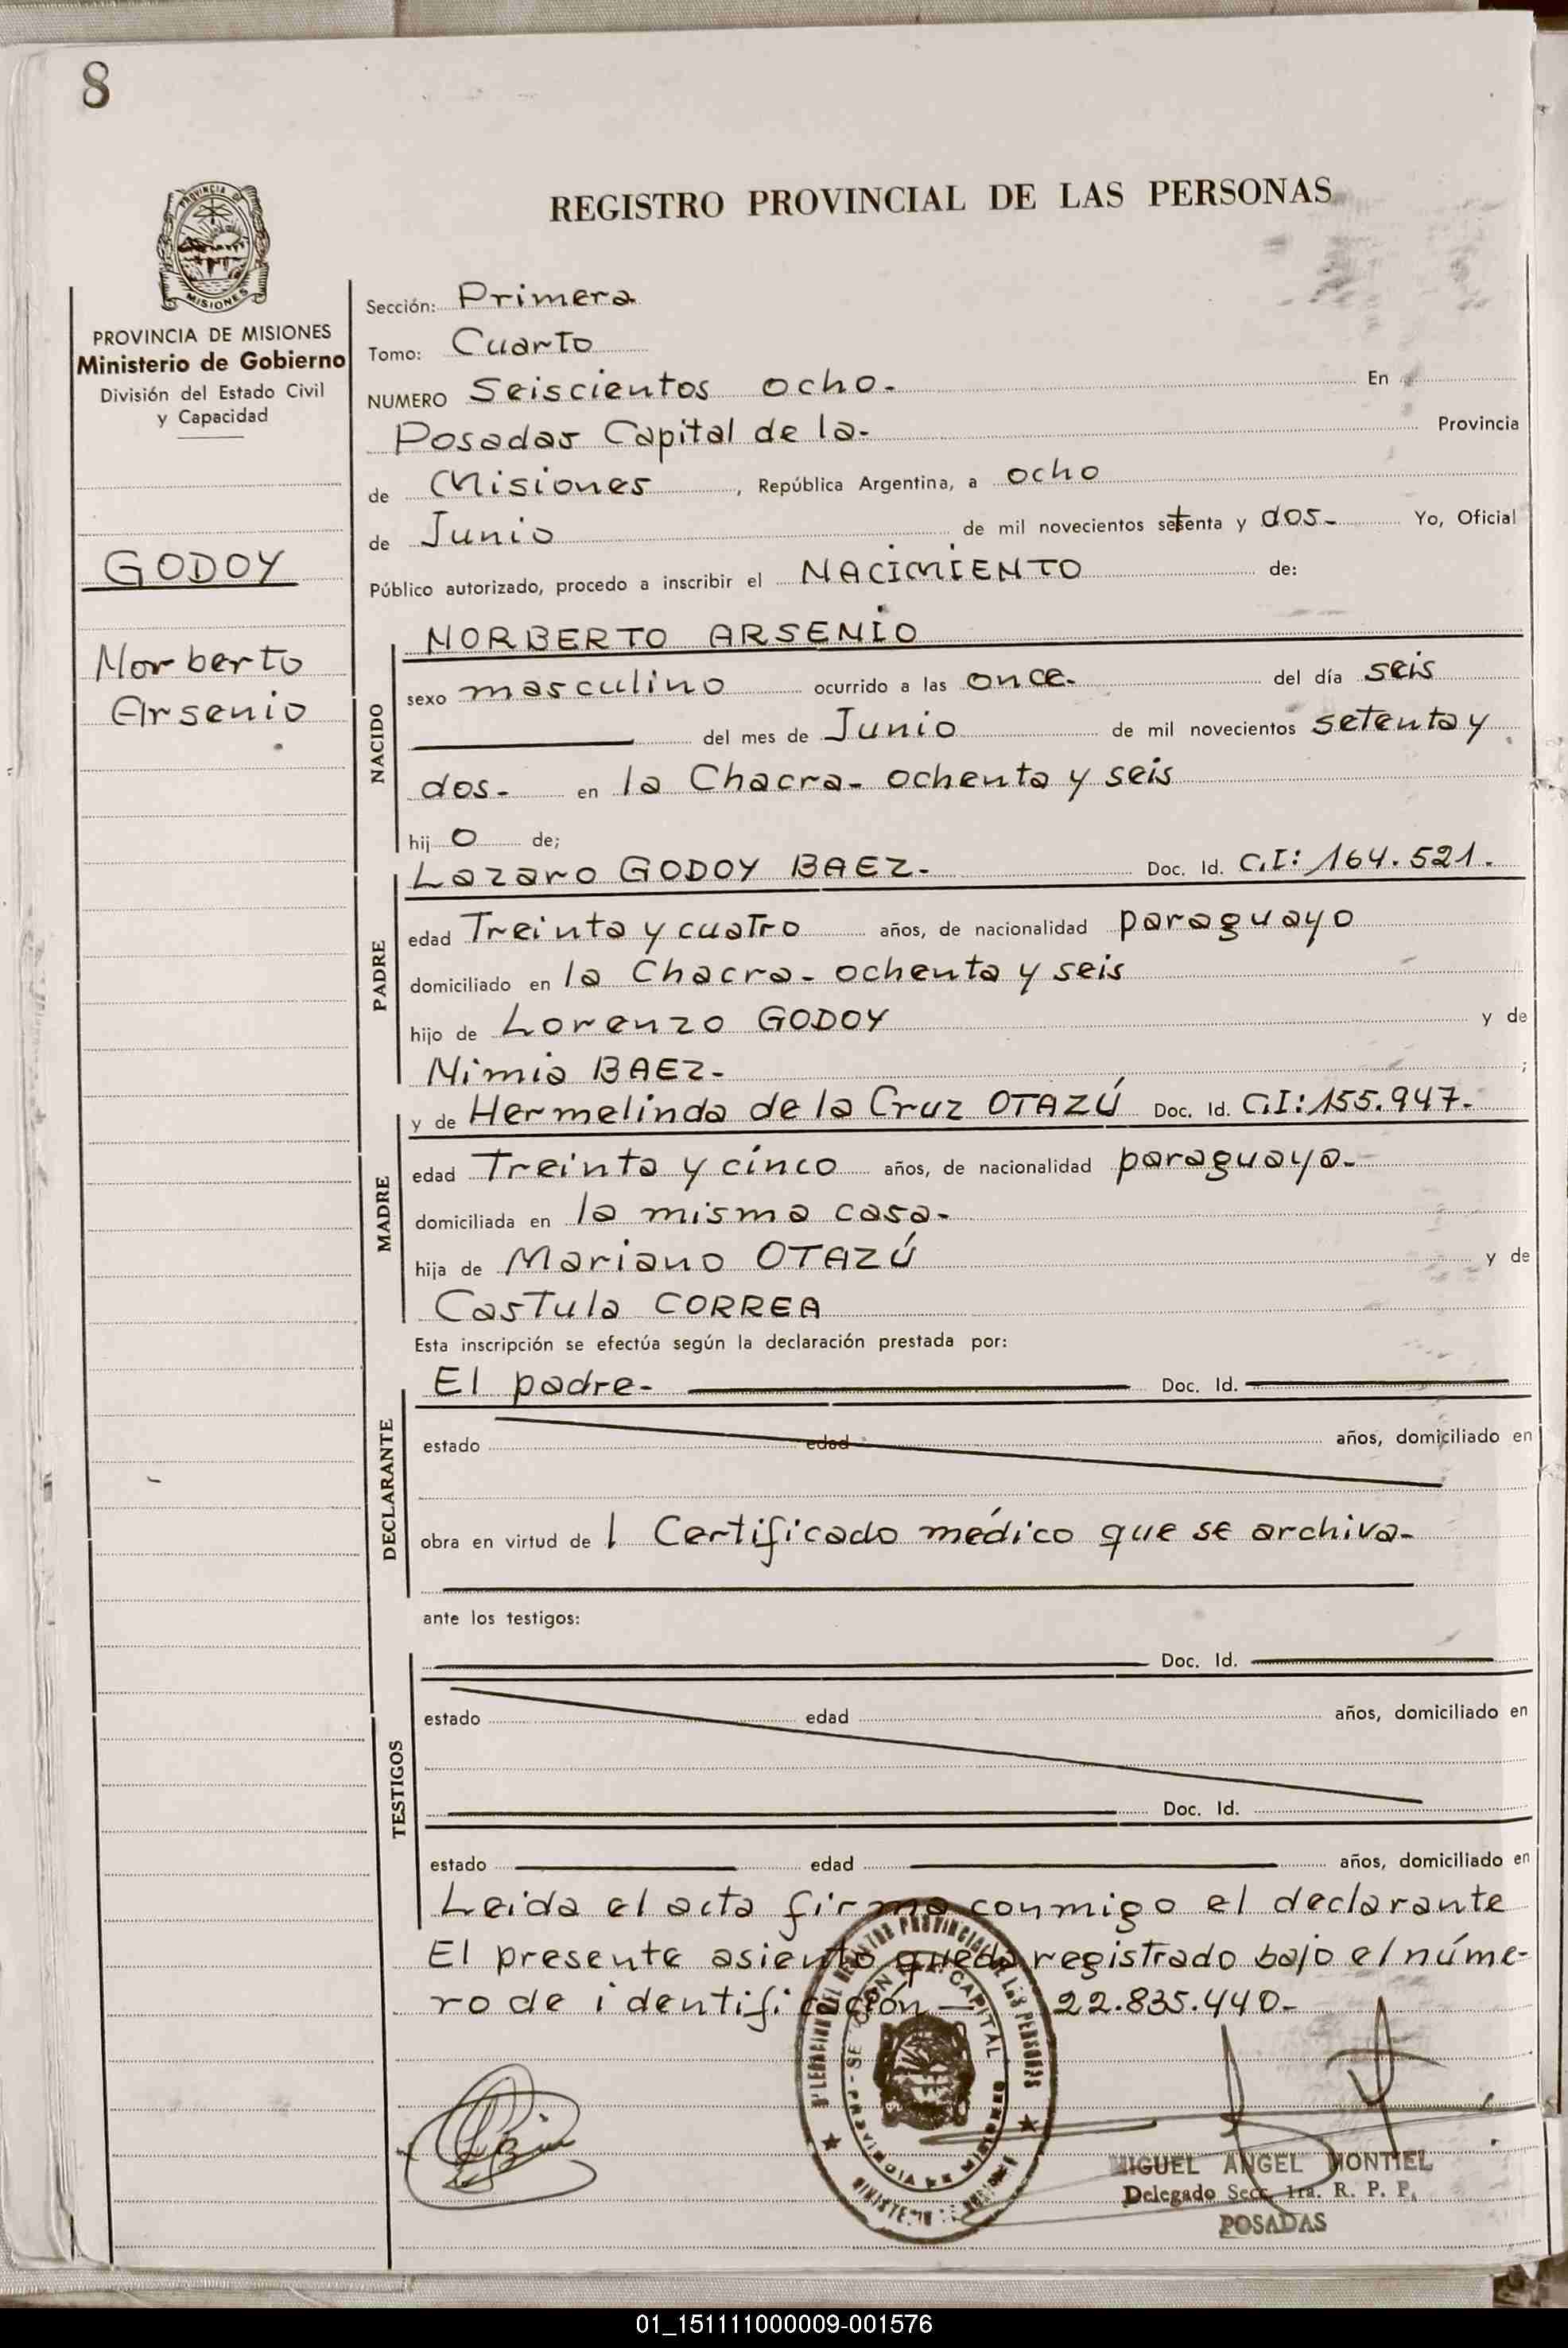 8
REGISTRO PROVINCIAL DE LAS PERSONAS
PROVINCIA DE MISIONES
Ministerio de Gobierno
División del Estado Civil
y Capacidad
GODOY
Norberto
Arsenio
Sección: Primera
Tomo: Cuarto
NUMERO Seiscientos ocho. En
Posadas Capital de la- Provincia
de Misiones, República Argentina, a ocho
de Junio de mil novecientos setenta y dos- Yo, Oficial
Público autorizado, procedo a inscribir el NACIMIENTO de:
NACIDO
NORBERTO ARSENIO
sexo masculino ocurrido a las once- del día seis
del mes de Junio de mil novecientos setenta y
dos- en la Chacra- ochenta y seis
hij o de;
PADRE
Lazaro GODOY BAEZ- Doc. Id. C.I: 164.521.
edad Treinta y cuatro años, de nacionalidad paraguayo
domiciliado en la Chacra- ochenta y seis
hijo de Lorenzo GODOY y de
Nimia BAEZ- ;
MADRE
y de Hermelinda de la Cruz OTAZÚ Doc. Id. C.I: 155.947-
edad Treinta y cinco años, de nacionalidad paraguaya-
domiciliada en la misma casa-
hija de Mariano OTAZÚ y de
Castula CORREA
Esta inscripción se efectúa según la declaración prestada por:
DECLARANTE
El padre- Doc. Id.
estado edad años, domiciliado en
obra en virtud de 1 Certificado médico que se archiva-
ante los testigos:
TESTIGOS
Doc. Id.
estado edad años, domiciliado en
Doc. Id.
estado edad años, domiciliado en
Leida el acta firma conmigo el declarante
El presente asiento queda registrado bajo el núme-
ro de identificación — 22.835.440-
MIGUEL ANGEL MONTIEL
Delegado Secc. 1ra. R. P. P.
POSADAS
01_151111000009-001576